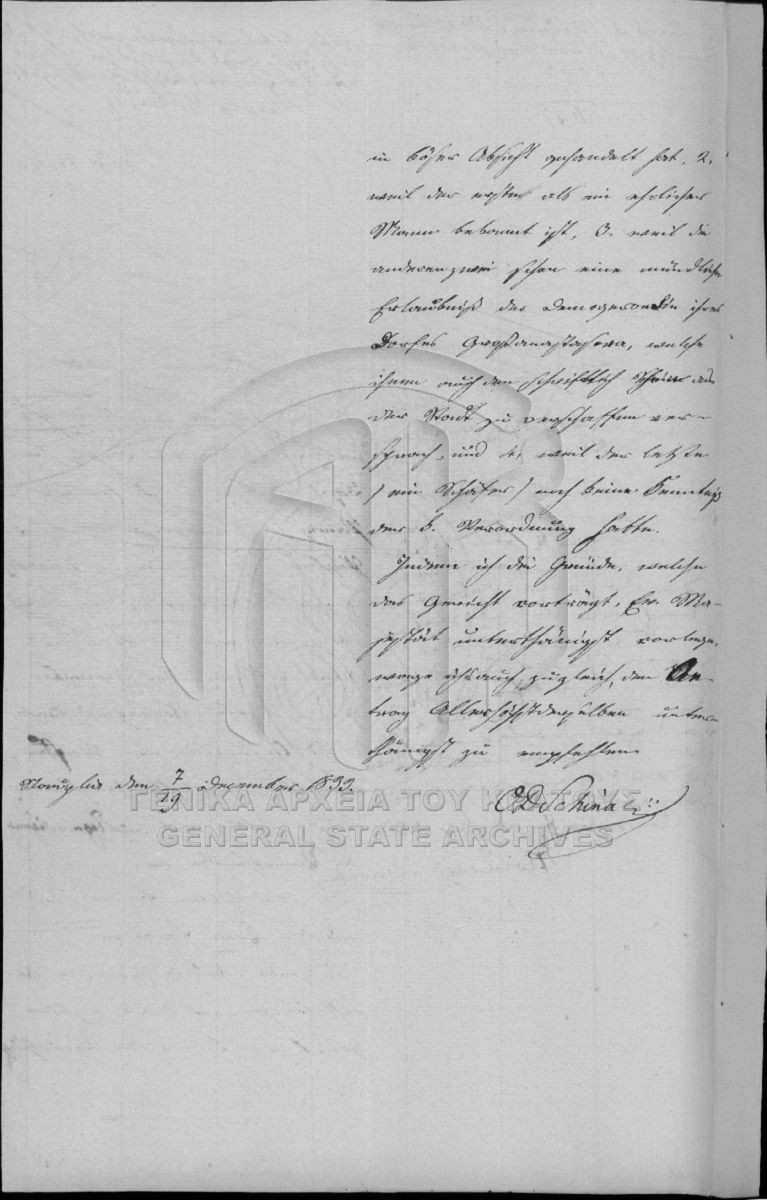 in böser Absicht gehandelt hat, 2,
weil der erste als ein ehrlicher
Mann bekannt ist, 3, weil die
anderen zwei schon eine mündliche
Erlaubniß der Demogeronten ihres
Dorfes Großanastasova, welche
ihnen auch den schriftlich Schein aus
der Stadt zu verschaffen ver-
sprach, und 4, weil der letzte
/ ein Schäfer / noch keine Kenntniß
der k. Verordnung hatte.
Indem ich die Gründe, welche
das Gericht vorträgt, Ew. Ma-
jestät unterthänigst vorlege,
wage ich auch zugleich, den An-
trag Allerhöchstderselben unter-
thänigst zu empfehlen
Nauplia den 7/19 December 1833.
C D Schina
ΓΕΝΙΚΑ ΑΡΧΕΙΑ ΤΟΥ ΚΡΑΤΟΥΣ
GENERAL STATE ARCHIVES